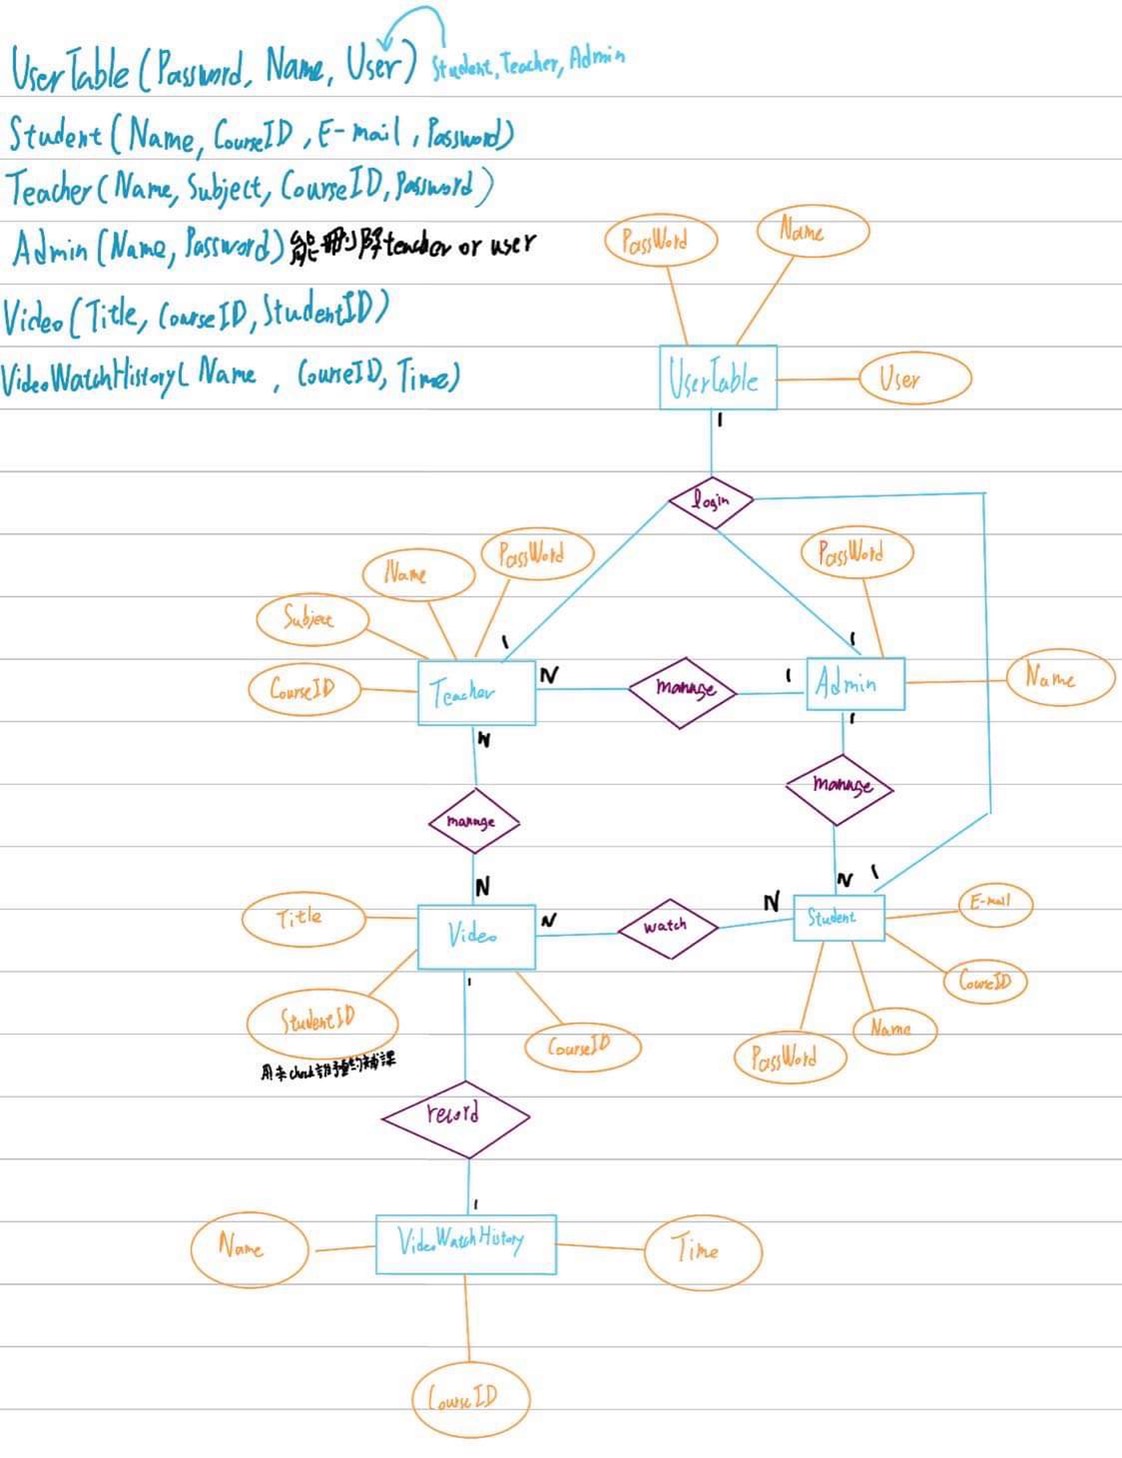 UserTable (Password, Name, User) Student, Teacher, Admin
Student (Name, CourseID, E-mail, Password)
Teacher (Name, Subject, CourseID, Password)
Admin (Name, Password) 能刪除teacher or user
Video (Title, CourseID, StudentID)
VideoWatchHistory( Name , CourseID, Time)
PassWord
Name
UserTable
User
1
login
PassWord
Name
PassWord
Subject
1
1
CourseID
Teacher
N
manage
1
Admin
Name
N
1
manage
manage
N
N
1
Title
Video
N
watch
N
Student
E-mail
1
StudentID
CourseID
CourseID
Name
PassWord
用來check
補課
record
1
Name
VideoWatchHistory
Time
CourseID